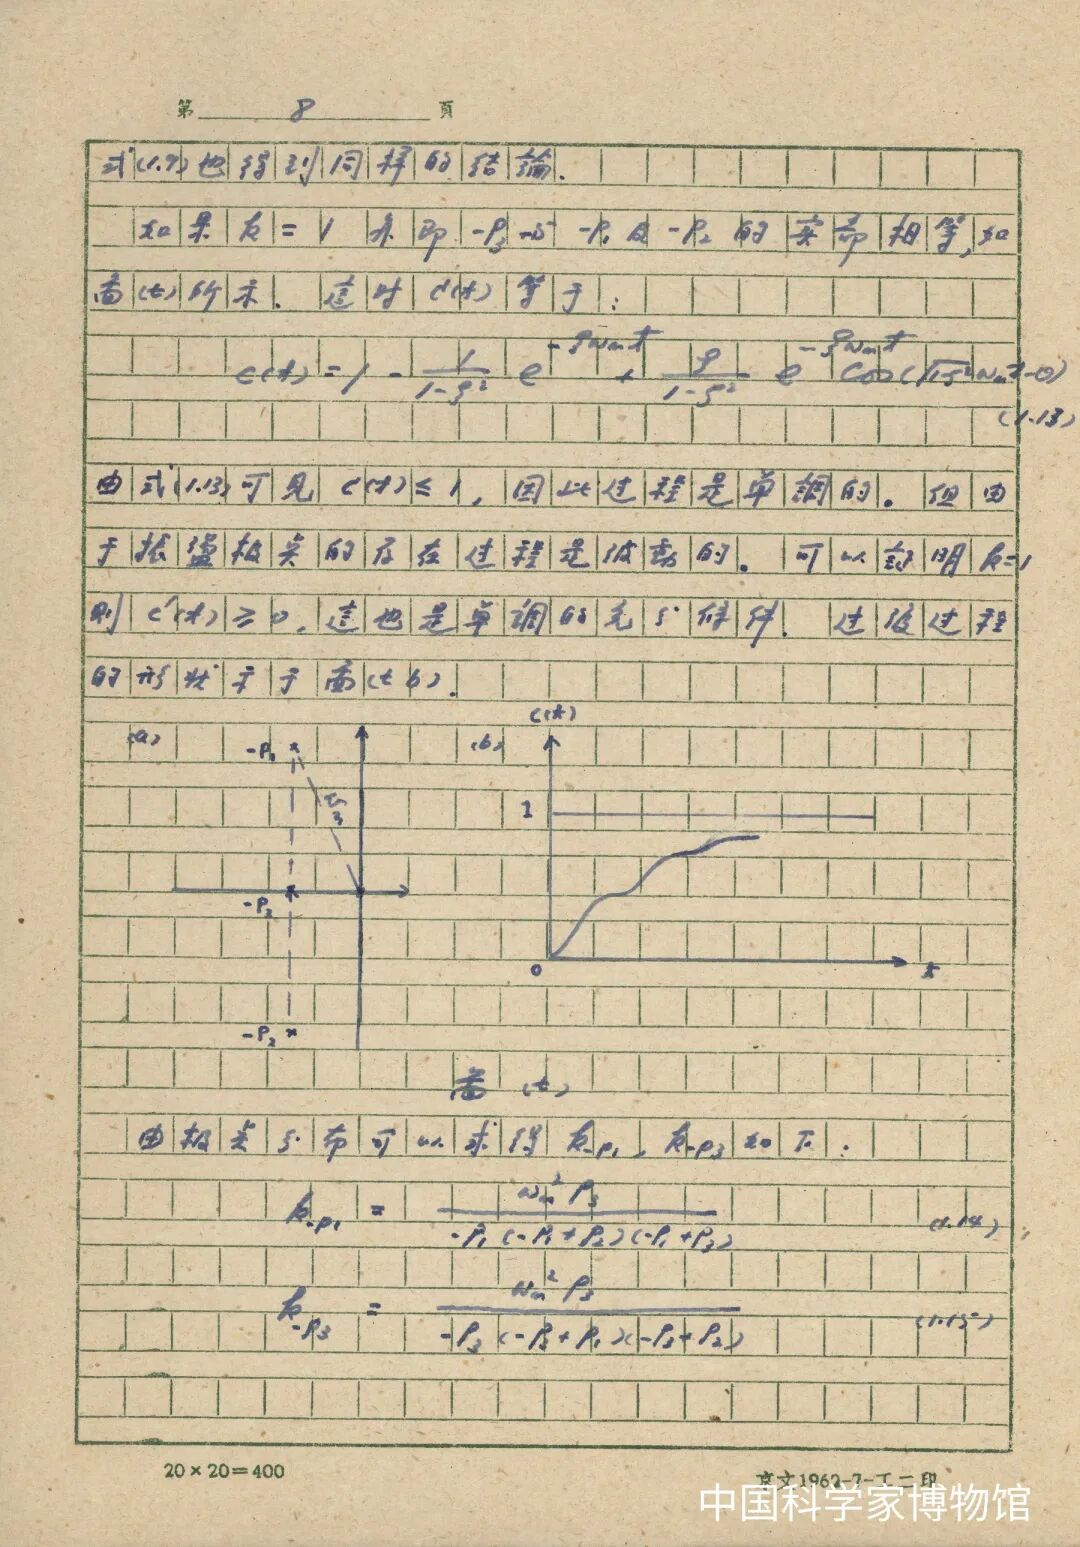 第 8 頁
式(1.7)也得到同样的结論.
如果k=1 亦即-P3与-P1及-P2的实部相等,如
畵(七)所示. 這时c(t)等于:
c(t)=1-1/(1-ζ²) e^(-ζωnt) + ζ/(1-ζ²) e^(-ζωnt) cos(√(1-ζ²)ωnt-θ)
(1.13)
由式(1.13)可見c(t)≤1,因此过程是单調的. 但由
于振盪极点的存在过程是波动的. 可以証明k=1
则c'(t)≥0,這也是单調的充分條件. 过渡过程
的形状示于畵(七b).
(a) -P1 ωn -P3 -P2
(b) c(t) 1 0 t
畵 (七)
由极点分布可以求得k-p1, k-p3如下:
k-p1 = ωn²P3/(-P1(-P1+P2)(-P1+P3)) (1.14)
k-p3 = ωn²P3/(-P3(-P3+P1)(-P3+P2)) (1.15)
20×20=400
京文1962-7-工二印
中国科学家博物馆